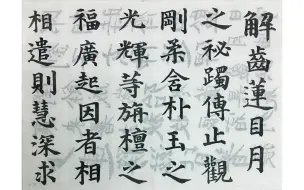 解齒蓮目月
之祕躅傳止觀
剛柔含朴玉之
光輝等旃檀之
福廣起因者相
相遣則慧深求